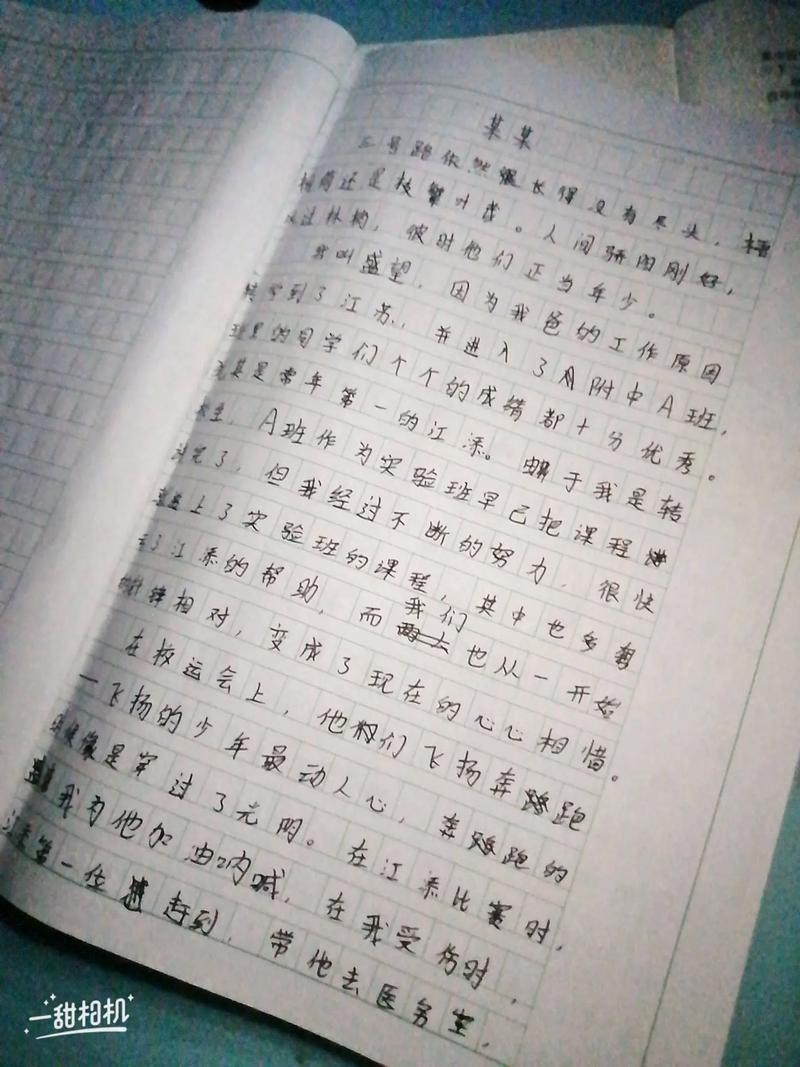 某某
三号路依然很长得没有尽头，梧
桐荫还是枝繁叶茂。人间骄阳刚好，
风过林梢，彼时他们正当年少。
我叫盛望，因为我爸的工作原因
转学到了江苏，并进入了附中A班，
班里的同学们个个的成绩都十分优秀。
尤其是常年第一的江添。由于我是转
学生，A班作为实验班早已把课程
讲完了，但我经过不断的努力，很快
上了实验班的课程，其中也多亏
了江添的帮助，而我们也从一开始
的针锋相对，变成了现在的心心相惜。
在校运会上，他们飞扬奔跑
一飞扬的少年最动人心，奔跑的
时候像是穿过了光阴。在江添比赛时，
我为他加油呐喊，在我受伤时，
江添第一位赶到，带他去医务室，
一甜相机